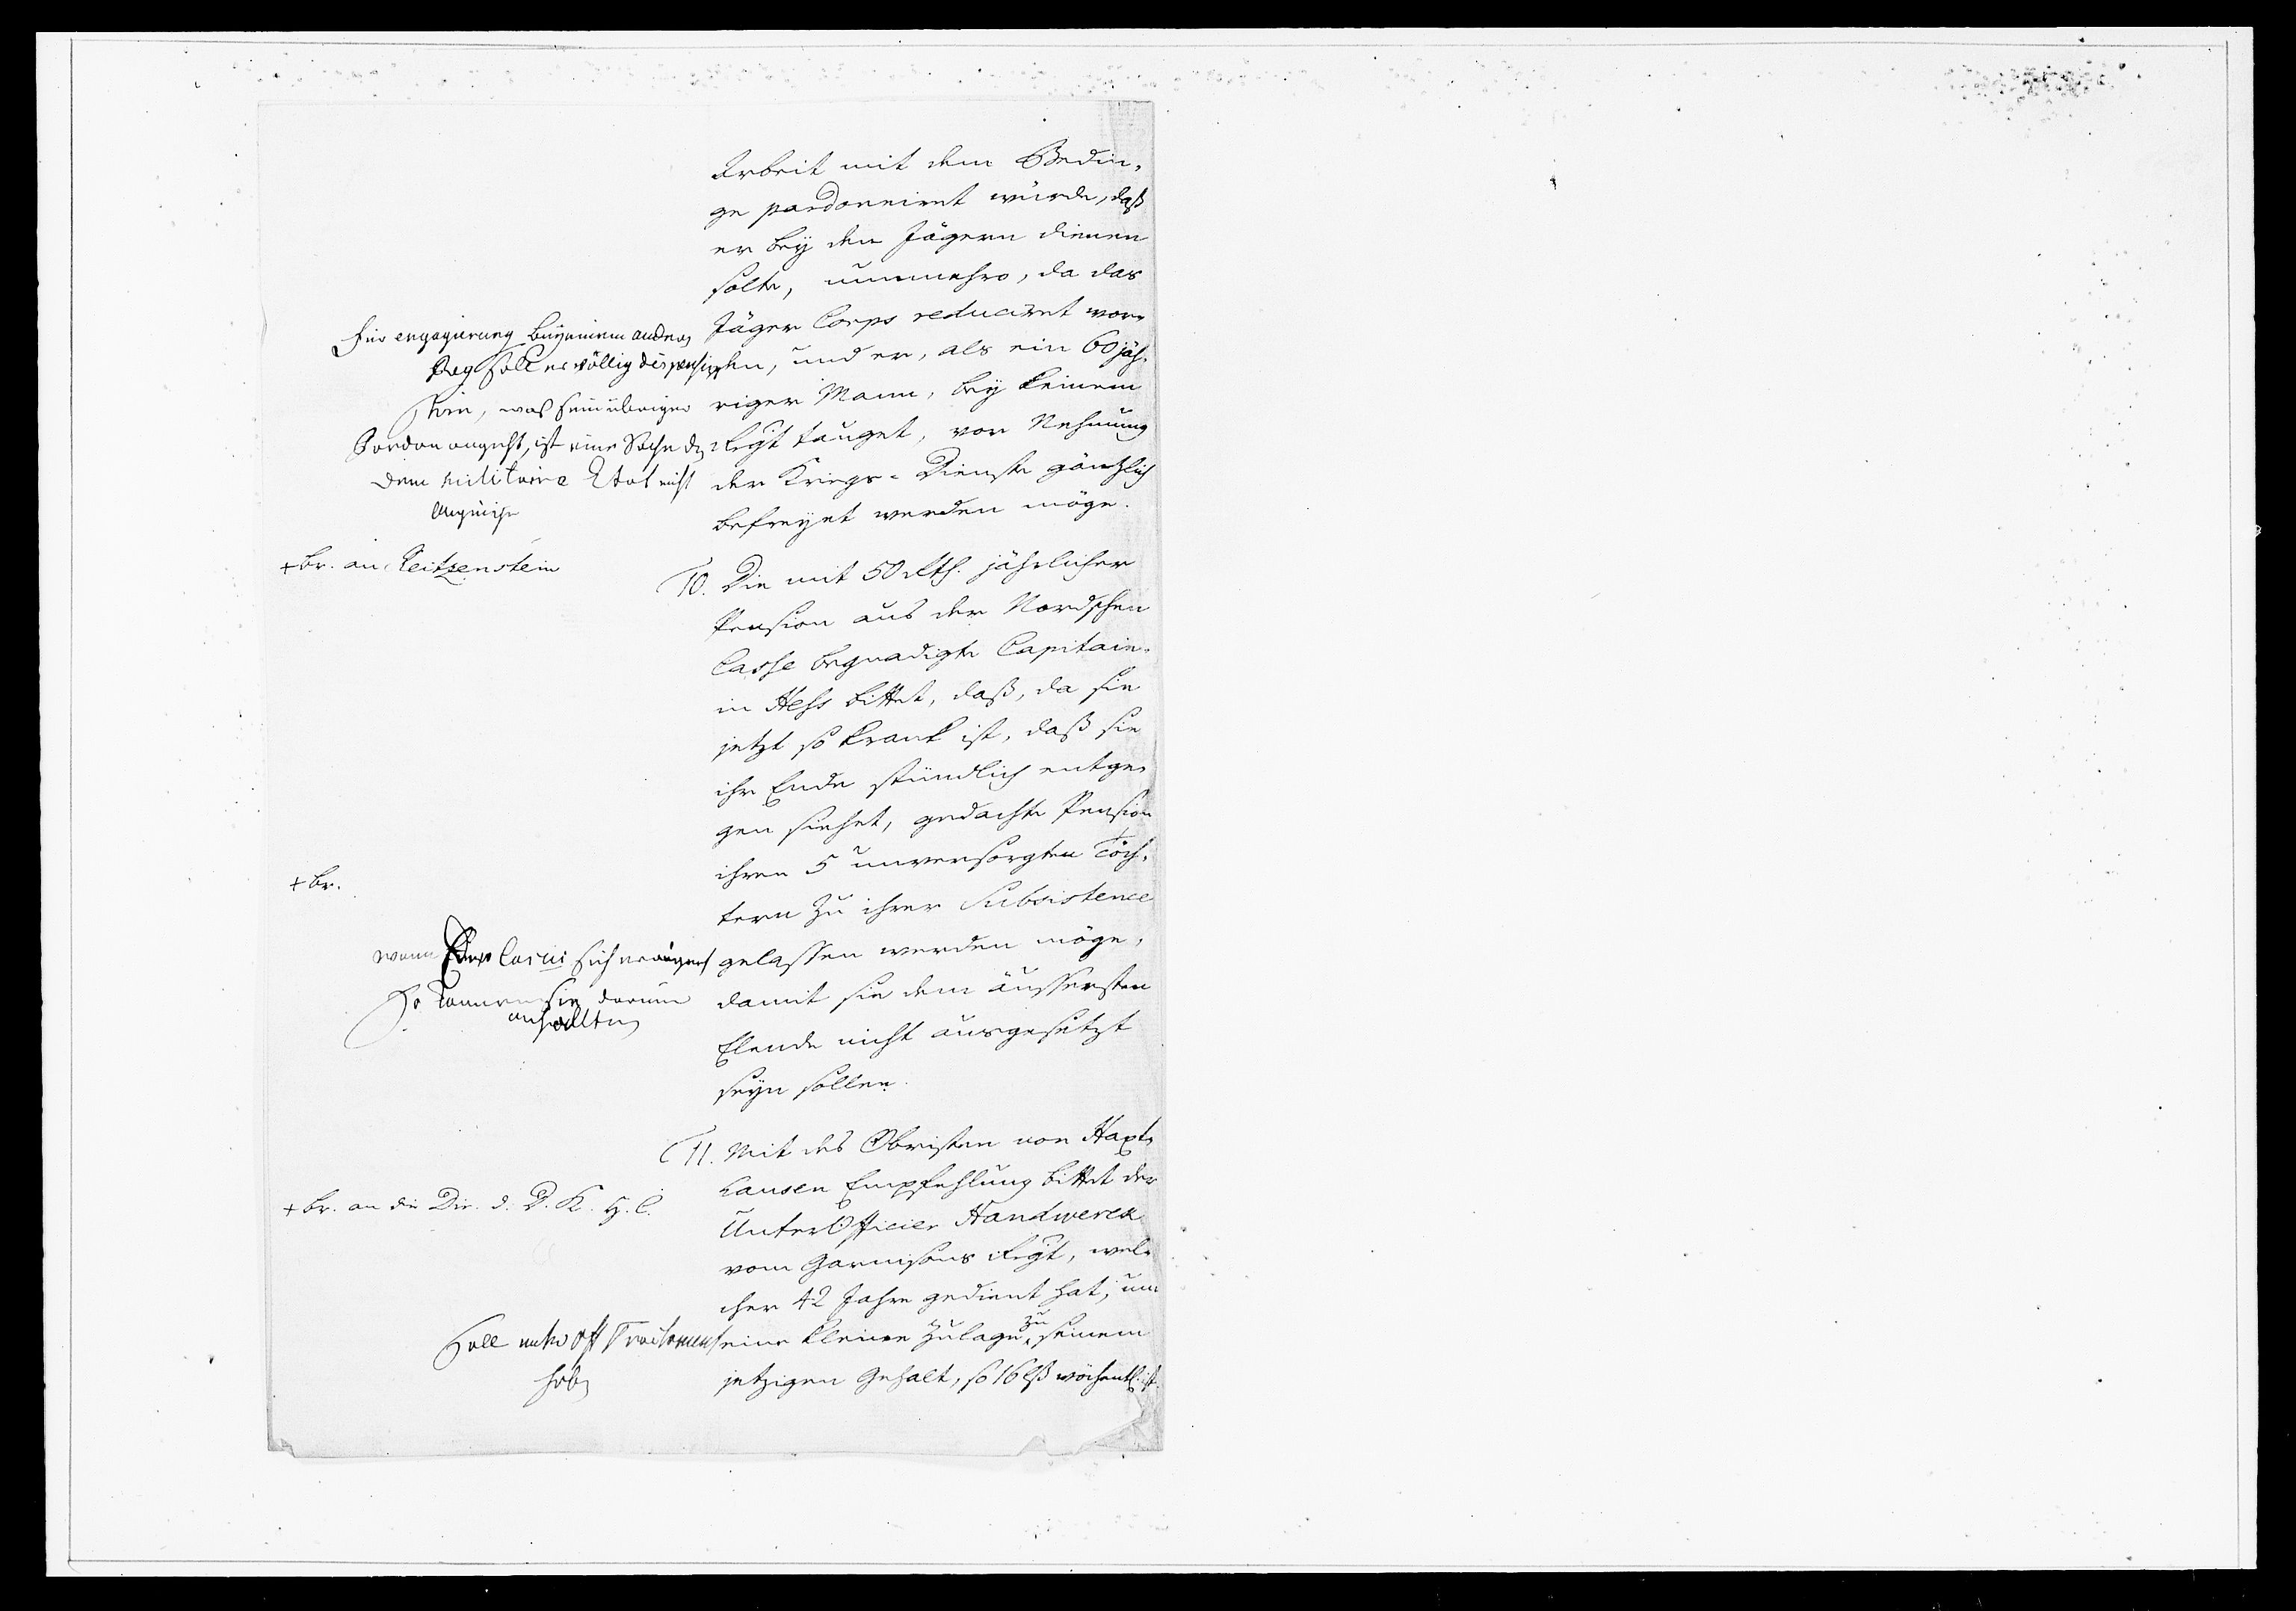 Arbeit mit dem Bedin-
ge pardonnirt würde, daß
er bey den Jägern dienen
solte, nunmehro, da das
Jäger Corps reduciret wor-
den, und er, als ein 60 jäh-
riger Mann, bey keinem
Regt tauget, von Nehmung
der Kriegs-Dienste gäntzlich
befreyet werden möge.
Für engagirung bey einem andern
Reg soll er völlig dispensirt
sein, was sein übriger
Pardon angeht, ist eine Sache die
dem militaire Etat nicht
angeht
+ Br. an Reitzenstein
10. Die mit 50 Rth. jährlicher
Pension aus der Nordschen
Casse begnadigte Capitain-
in Hess bittet, daß, da sie
jetzt so krank ist, daß sie
ihr Ende stündlich entge-
gen siehet, gedachte Pension
ihren 5 unversorgten Töch-
tern zu ihrer Subsistence
gelassen werden möge,
damit sie dem äussersten
Elende nicht ausgesetzt
seyn sollen.
+ Br.
wenn der Casus sich ereignet
so können sie darum
anhalten
11. Mit des Obristen von Haxt-
hausen Empfehlung bittet der
UnterOfficier Handwerck
vom Garnisons Regt, wel-
cher 42 Jahre gedient hat, um
eine kleine Zulage zu seinem
jetzigen Gehalt, so 16 lß wöchentl. ist.
+ Br. an die Dir. d. D. K. H. C.
soll unter Off Tractament
haben